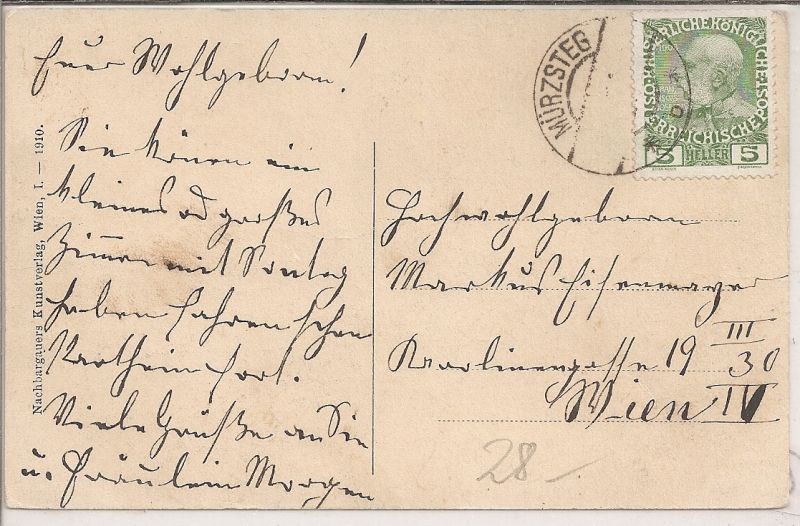 Euer Wohlgeboren!
Sie können ein
kleines od großes
Zimmer mit Sontag
haben fahren schon
fort.
Viele Grüße an Sie
u. Fräulein Morgen
Nachbargauers Kunstverlag, Wien, I. — 1910.
MÜRZSTEG
KAISERLICHE KÖNIGLICHE ÖSTERREICHISCHE POST
5 HELLER 5
Hochwohlgeboren
Markus Eisenmayer
Karolinengasse 19 III/30
Wien IV
28-